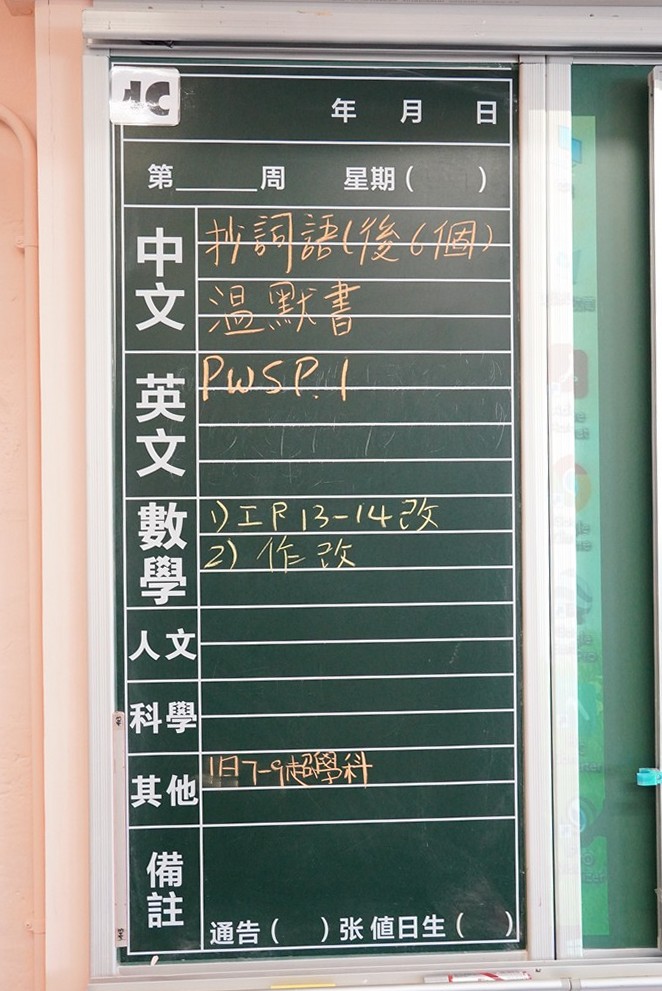 4C
年 月 日
第______周 星期( )
中文
抄詞語(後6個)
溫默書
英文
PWS P.1
數學
1) 工P13-14改
2) 作改
人文
科學
其他
1日7-9超學科
備註
通告( )张 値日生( )